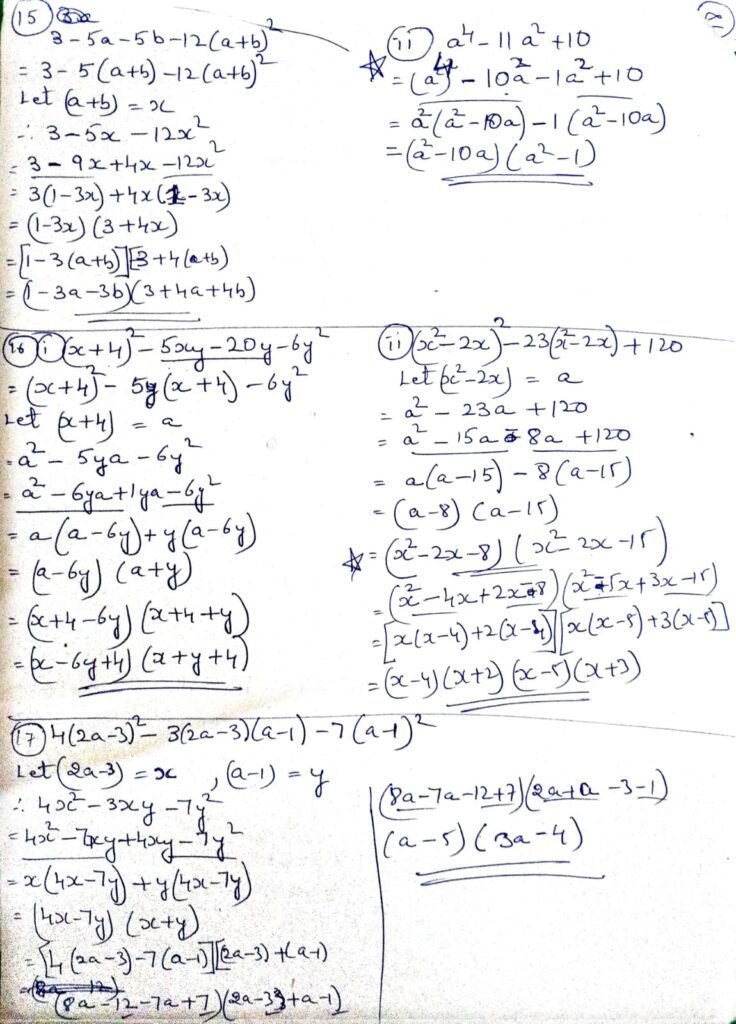 (15)
3-5a-5b-12(a+b)²
= 3-5(a+b)-12(a+b)²
Let (a+b) = x
∴ 3-5x-12x²
= 3-9x+4x-12x²
= 3(1-3x)+4x(1-3x)
= (1-3x)(3+4x)
= [1-3(a+b)][3+4(a+b)
= (1-3a-3b)(3+4a+4b)
(ii) a⁴-11a²+10
= (a⁴-10a²-1a²+10
= a²(a²-10a)-1(a²-10a)
= (a²-10a)(a²-1)
(16) (i) (x+4)²-5xy-20y-6y²
= (x+4)²-5y(x+4)-6y²
Let (x+4) = a
= a²-5ya-6y²
= a²-6ya+1ya-6y²
= a(a-6y)+y(a-6y)
= (a-6y)(a+y)
= (x+4-6y)(x+4+y)
= (x-6y+4)(x+y+4)
(ii) (x²-2x)²-23(x²-2x)+120
Let (x²-2x) = a
= a²-23a+120
= a²-15a-8a+120
= a(a-15)-8(a-15)
= (a-8)(a-15)
= (x²-2x-8)(x²-2x-15)
= (x²-4x+2x-8)(x²-5x+3x-15)
= [x(x-4)+2(x-4][x(x-5)+3(x-5)]
= (x-4)(x+2)(x-5)(x+3)
(17) 4(2a-3)²-3(2a-3)(a-1)-7(a-1)²
Let (2a-3) = x , (a-1) = y
∴ 4x²-3xy-7y²
= 4x²-7xy+4xy-7y²
= x(4x-7y)+y(4x-7y)
= (4x-7y)(x+y)
= [4(2a-3)-7(a-1)][(2a-3)+(a-1)
= (8a-12)
(8a-12-7a+7)(2a-3+a-1)
(8a-7a-12+7)(2a+a-3-1)
(a-5)(3a-4)